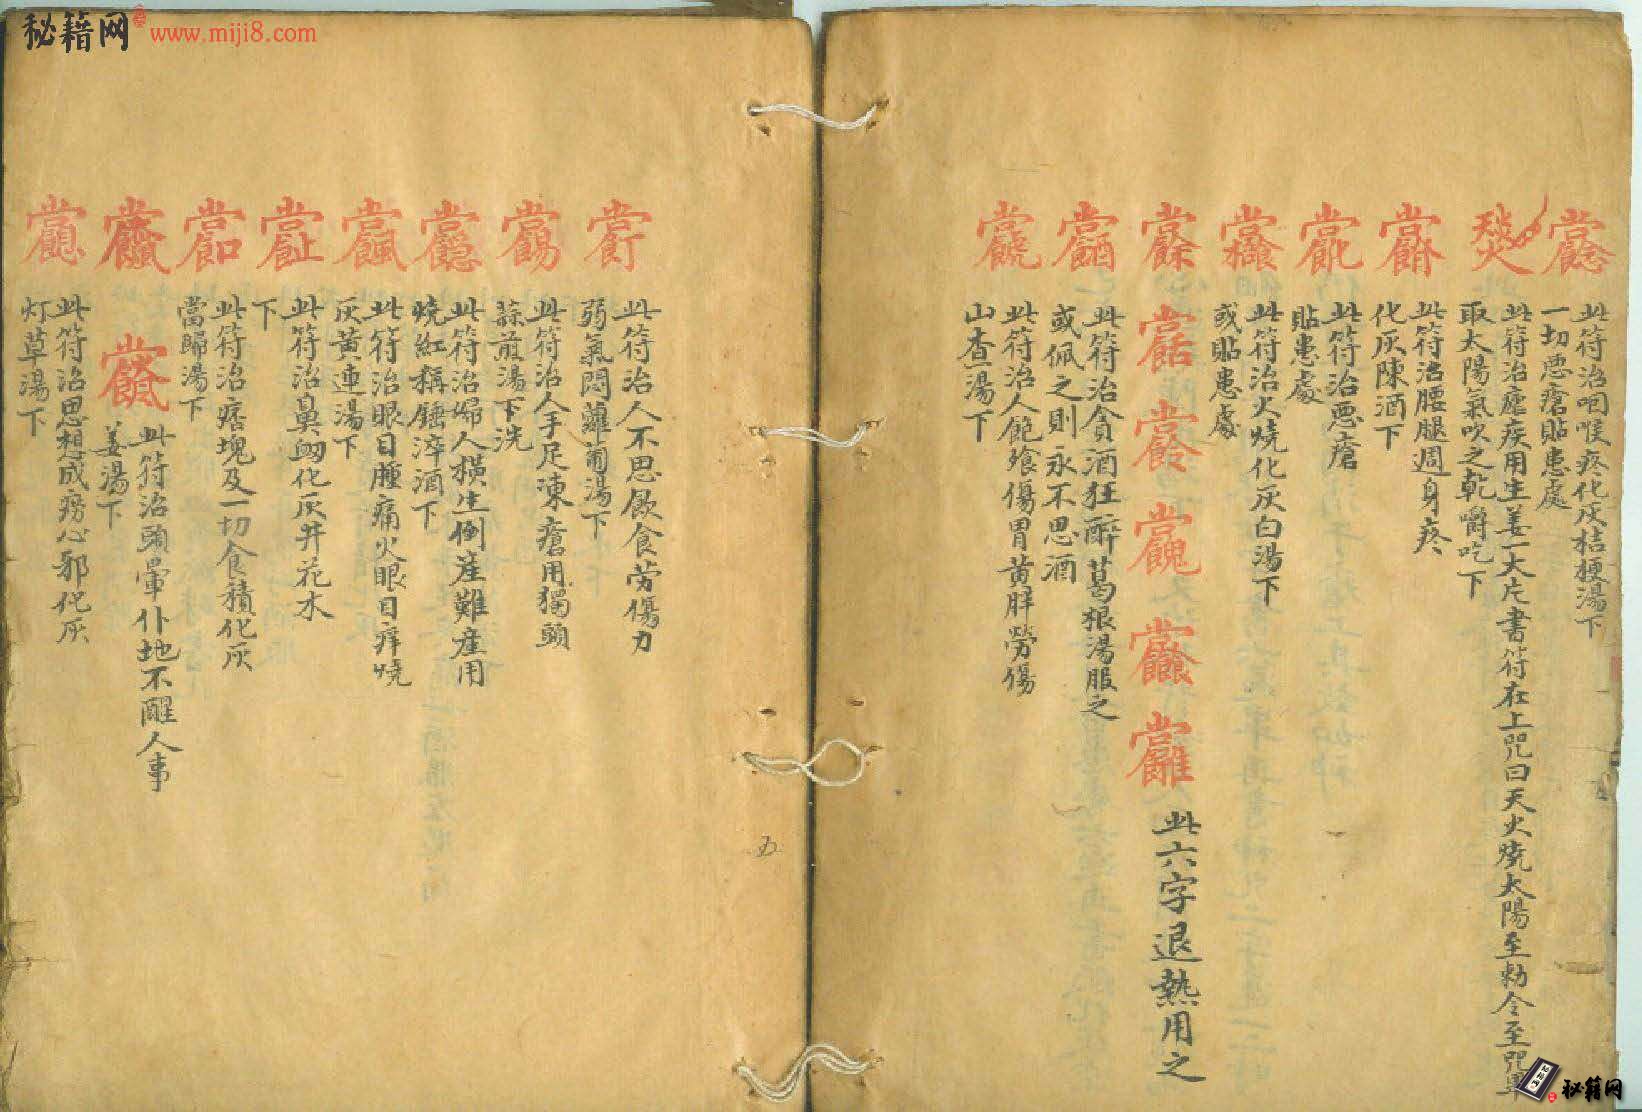 此符治咽喉疼化灰桔梗湯下
一切惡瘡貼患處
此符治瘧疾用生姜一大片書符在上咒曰天火燒太陽至勅令至咒畢
取太陽氣吹之乾嚼吃下
此符治腰腿週身疼
化灰陳酒下
此符治惡瘡
貼患處
此符治火燒化灰白湯下
或貼患處
此六字退熱用之
此符治貪酒狂醉葛根湯服之
或佩之則永不思酒
此符治人飽飧傷胃黃胖勞傷
山查湯下
此符治人不思飲食勞傷力
弱氣悶蘿蔔湯下
此符治人手足凍瘡用獨頭
蒜煎湯下洗
此符治婦人橫生倒產難產用
燒紅稱錘淬酒下
此符治眼目腫痛火眼目痒燒
灰黃連湯下
此符治鼻衄化灰井花水
下
此符治痞塊及一切食積化灰
當歸湯下
此符治頭暈仆地不醒人事
姜湯下
此符治思想成癆心邪化灰
灯草湯下
五
秘籍网 www.miji8.com
秘籍网